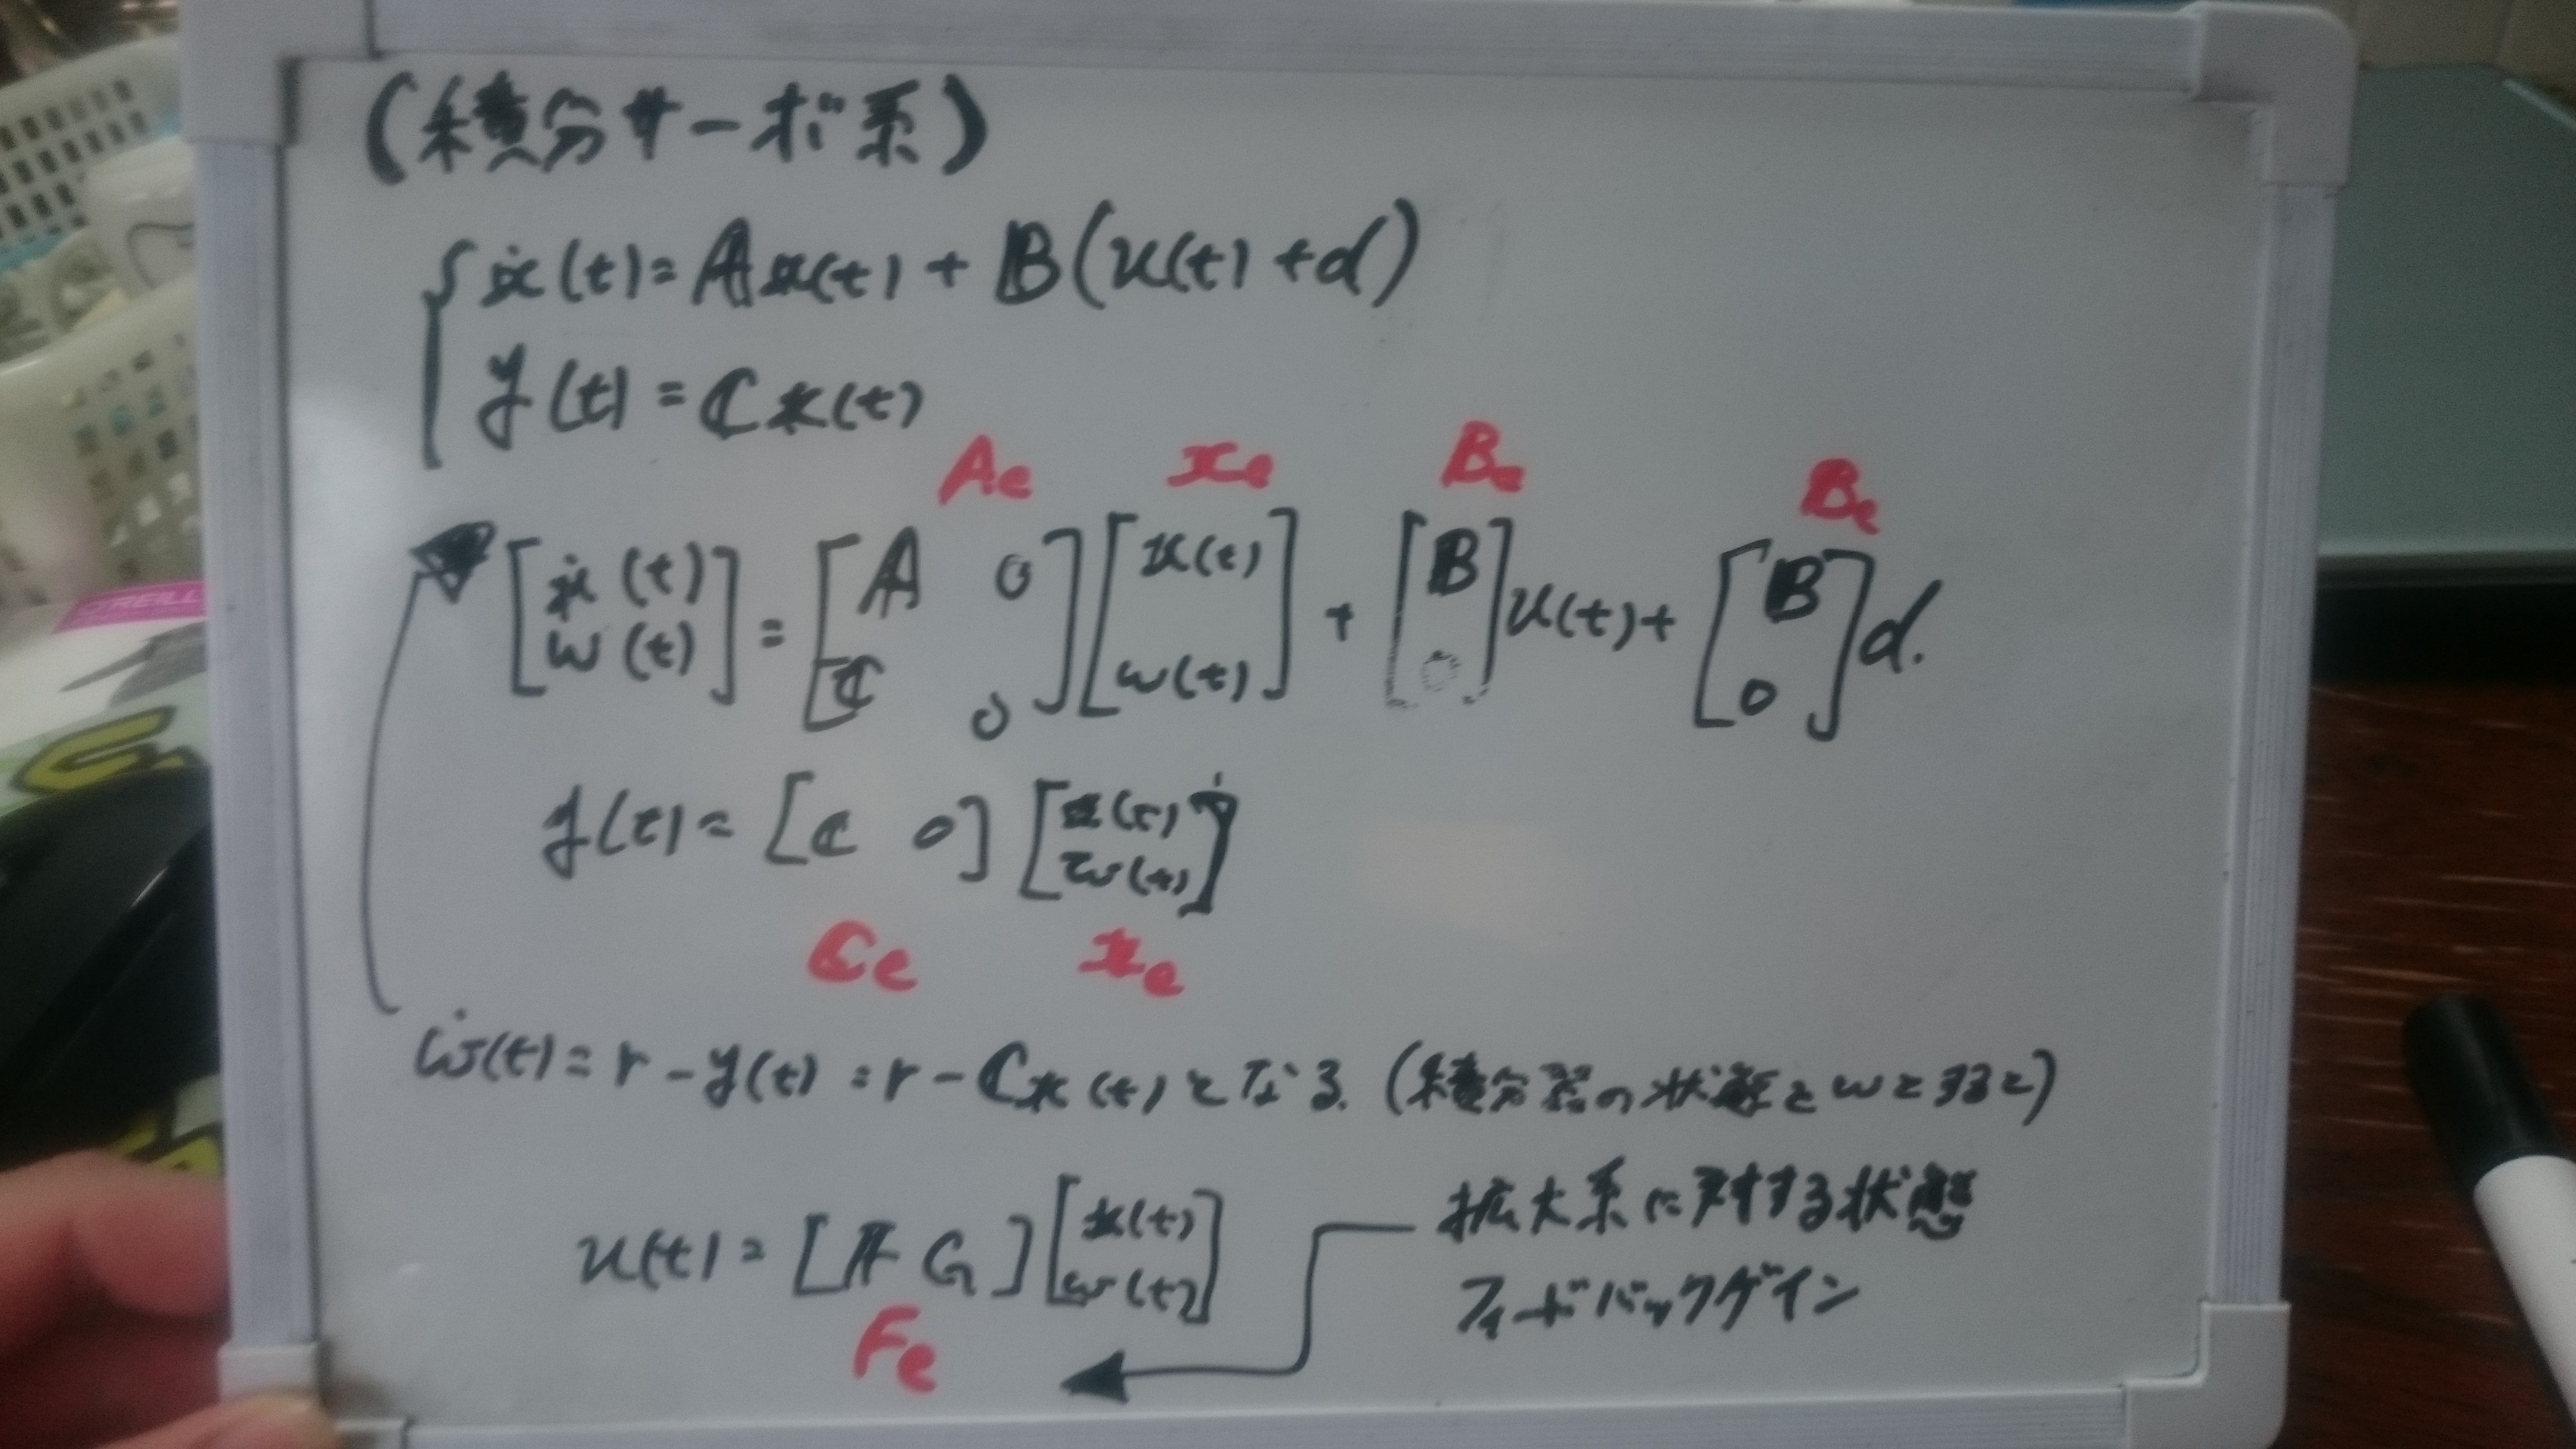 (積分サーボ系)
ẋ(t) = Ax(t) + B(u(t) + d)
y(t) = Cx(t)
Ae xe Be Be
[ẋ(t) w(t)] = [A 0 -C 0][x(t) w(t)] + [B 0]u(t) + [B 0]d.
y(t) = [C 0][x(t) w(t)]
Ce xe
ẇ(t) = r - y(t) = r - Cx(t) となる. (積分器の状態をwとすると)
u(t) = [F G][x(t) w(t)]
Fe
拡大系に対する状態
フィードバックゲイン
O'REILL